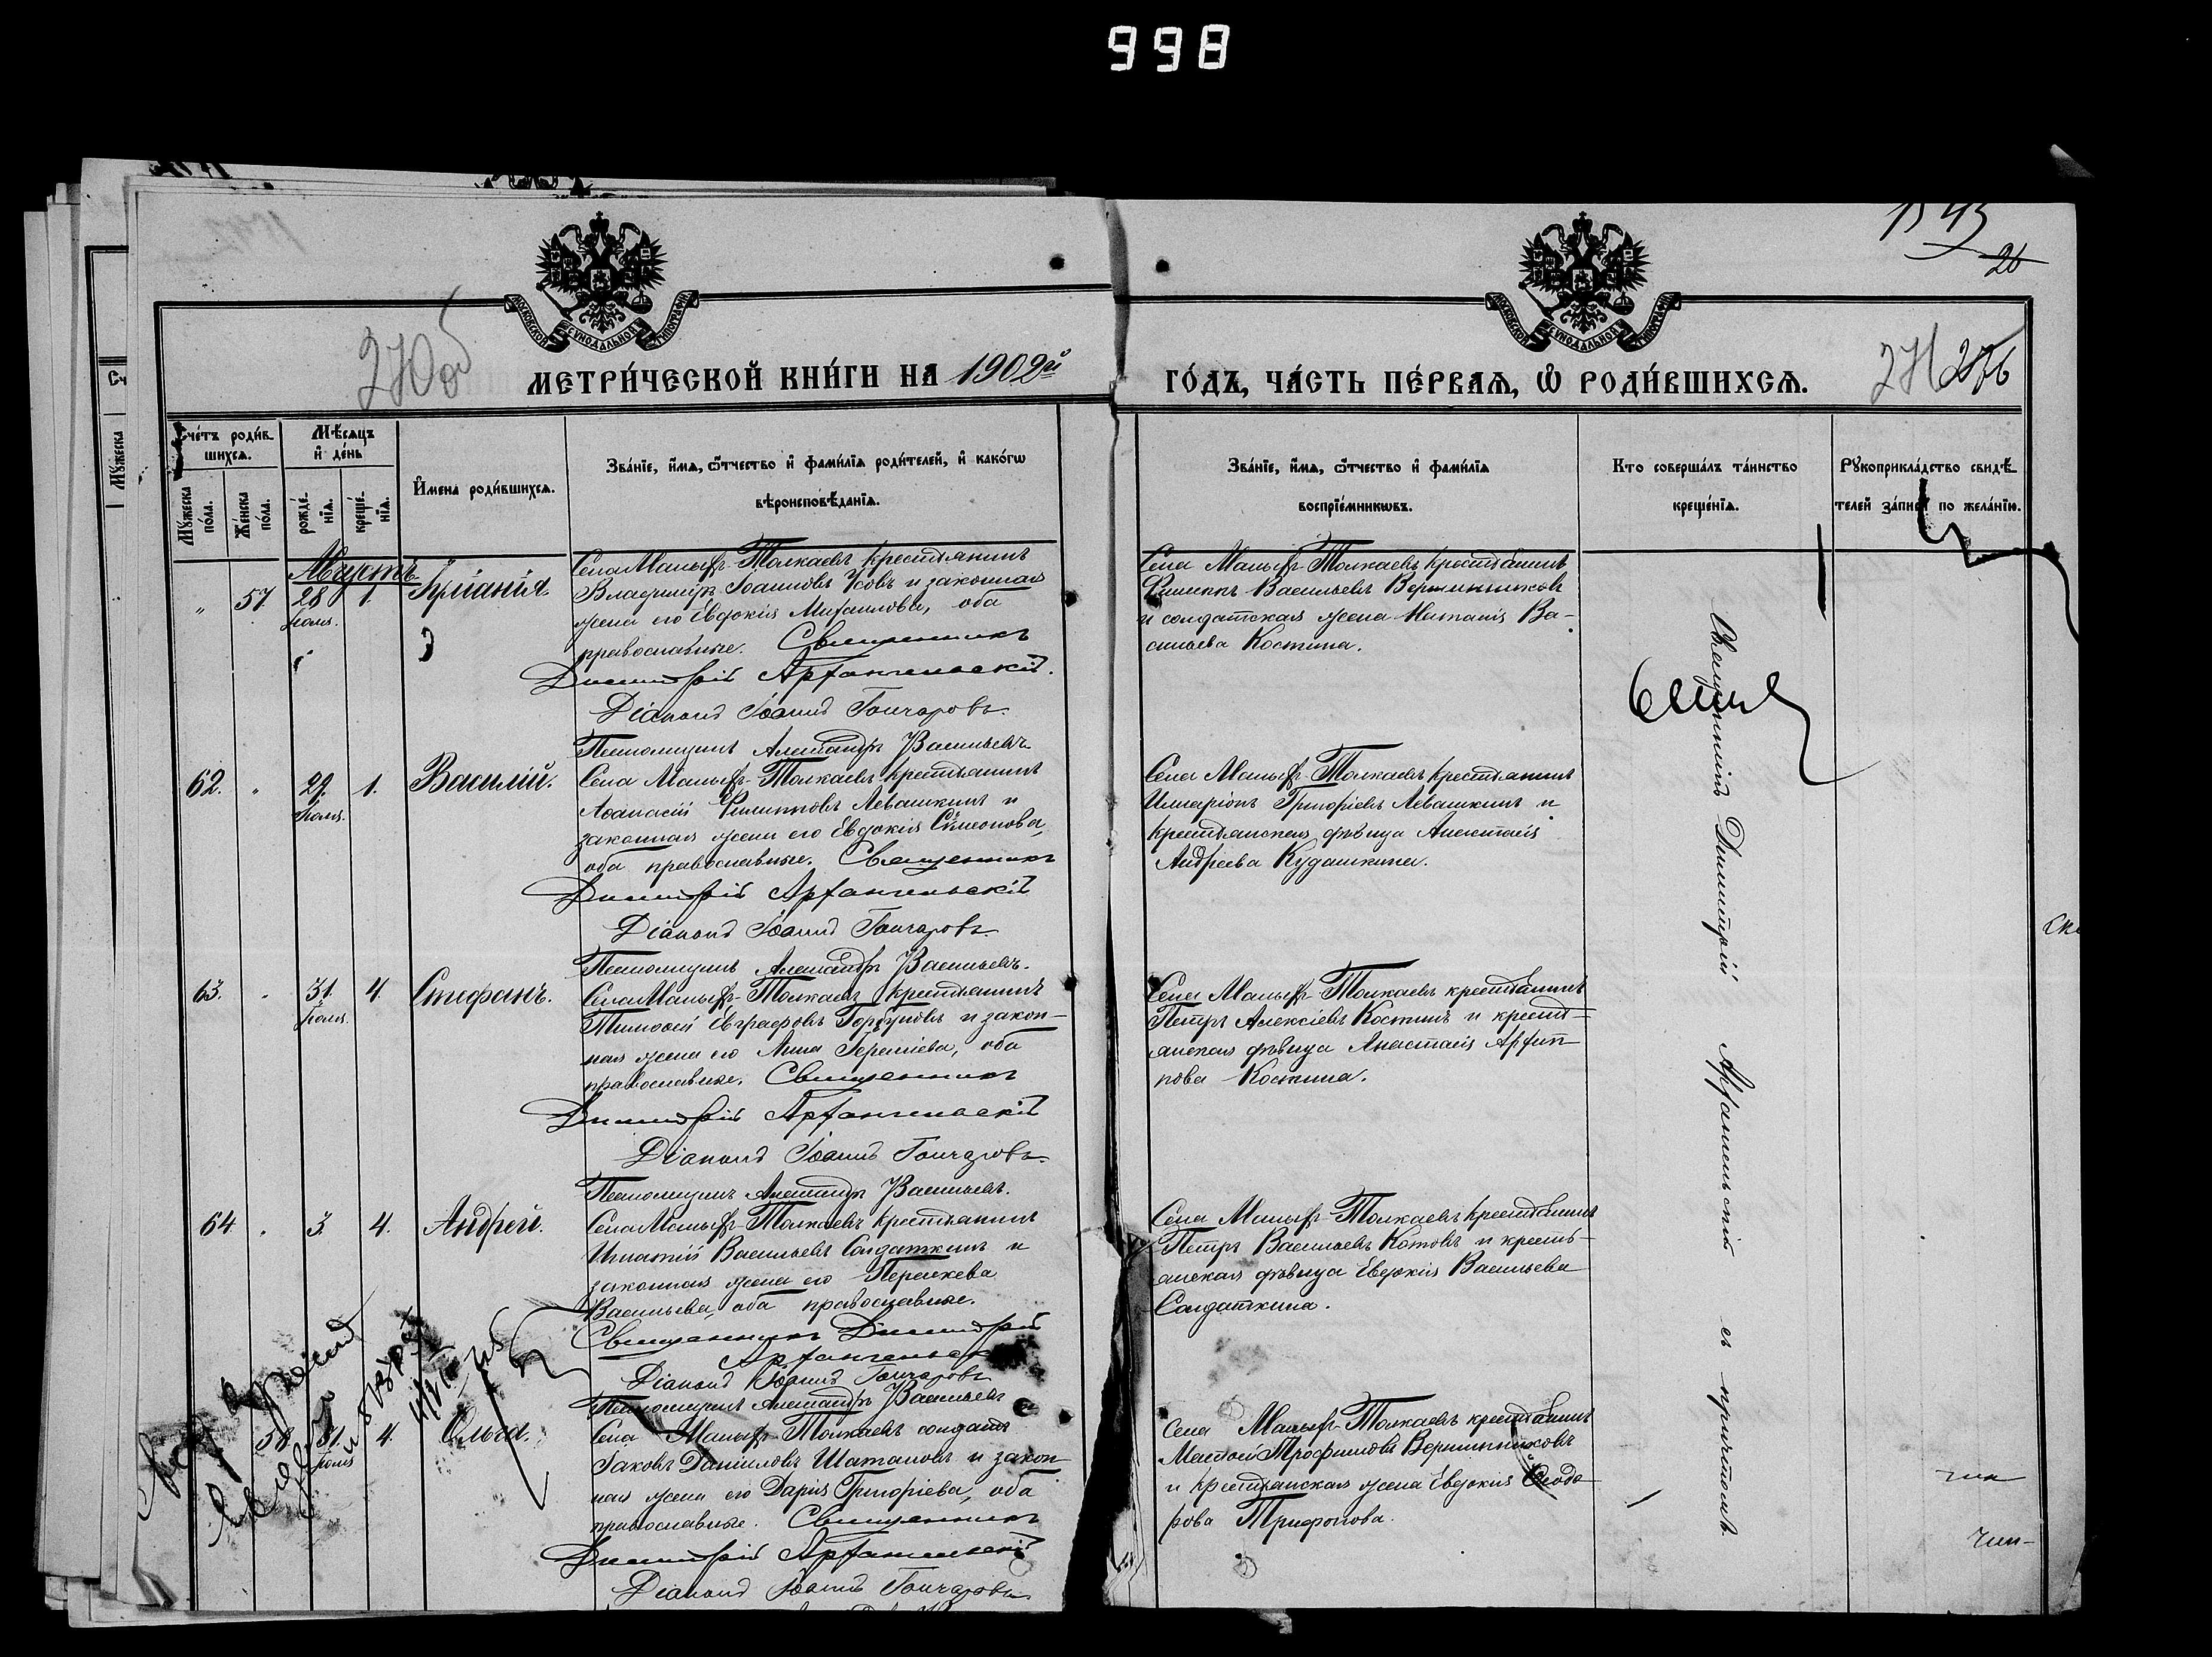 998
1543
26
МОСКОВСКОЙ СѴНОДАЛЬНОЙ ТИПОГРАФІИ
МОСКОВСКОЙ СѴНОДАЛЬНОЙ ТИПОГРАФІИ
270об
МЕТРИ́ЧЕСКОЙ КНИ́ГИ НА 1902й
ГО́ДЪ, ЧА́СТЬ ПЕ́РВАѦ, Ѡ҆ РОДИ́ВШИХСѦ.
271 276
Сче́тъ роди́в-
шихсѧ.
Мѣ́сѧцъ
и҆ де́нь
Мꙋ́жеска
по́ла.
Же́нска
по́ла.
рожде́-
нїѧ.
креще́-
нїѧ.
И҆мена роди́вшихсѧ.
Зва́нїе, и҆́мѧ, ѻ҆́тчество и҆ фами́лїѧ роди́телей, и҆ како́гѡ
вѣроисповѣ́данїѧ.
Зва́нїе, и҆́мѧ, ѻ҆́тчество и҆ фами́лїѧ
воспрїе́мникѡвъ.
Кто соверша́лъ та́инство
креще́нїѧ.
Рꙋкоприкла́дство свидѣ́-
телей за́писи по жела́нїю.
Августъ
" 57. 28 Іюля. 1.
Села Малыхъ-Толкаевъ крестьянинъ
Владиміръ Іоанновъ Усовъ и законная
жена его Евдокія Михаилова, оба
православные. Священникъ
Димитрій Архангельскій.
Діаконъ Іоаннъ Гончаровъ.
Псаломщикъ Александръ Васильевъ
Села Малыхъ-Толкаевъ крестьянинъ
Филиппъ Васильевъ Вершинниковъ
и солдатская жена Наталія Ва-
сильева Костина.
62. " 29. Іюля. 1. Василій.
Села Малыхъ-Толкаевъ крестьянинъ
Аѳанасій Филипповъ Левашкинъ и
законная жена его Евдокія Сѵмеонова,
оба православные. Священникъ
Димитрій Архангельскій
Діаконъ Іоаннъ Гончаровъ.
Псаломщикъ Александръ Васильевъ.
Села Малыхъ-Толкаевъ крестьянинъ
Иларіонъ Григорьевъ Левашкинъ и
крестьянская дѣвица Анастасія
Андреева Кудашкина.
63. " 31. Іюля. 4. Стефанъ.
Села Малыхъ-Толкаевъ крестьянинъ
Тимоѳей Евграфовъ Горбуновъ и закон-
ная жена его Анна Іереміева, оба
православные. Священникъ
Димитрій Архангельскій
Діаконъ Іоаннъ Гончаровъ.
Псаломщикъ Александръ Васильевъ.
Села Малыхъ-Толкаевъ крестьянинъ
Петръ Алексіевъ Костинъ и кресть-
янская дѣвица Анастасія Архип-
пова Костина.
64 " 3. 4. Андрей.
Села Малыхъ-Толкаевъ крестьянинъ
Игнатій Васильевъ Солдаткинъ и
законная жена его Параскева
Васильева, оба православные.
Священникъ Димитрій
Архангельскій
Діаконъ Іоаннъ Гончаровъ
Псаломщикъ Александръ Васильевъ
Села Малыхъ-Толкаевъ крестьянинъ
Петръ Васильевъ Котовъ и кресть-
янская дѣвица Евдокія Васильева
Солдаткина.
58 31. Іюля 4. Ольга.
Села Малыхъ-Толкаевъ солдатъ
Іаковъ Даніиловъ Шаталовъ и закон-
ная жена его Дарія Григорьева, оба
православные. Священникъ
Димитрій Архангельскій
Діаконъ Іоаннъ Гончаровъ
Села Малыхъ-Толкаевъ крестьянинъ
Матѳей Трофимовъ Вершинниковъ
и крестьянская жена Евдокія Ѳеодо-
рова Трифонова.
Священникъ Димитрій Архангельскій съ причтомъ.